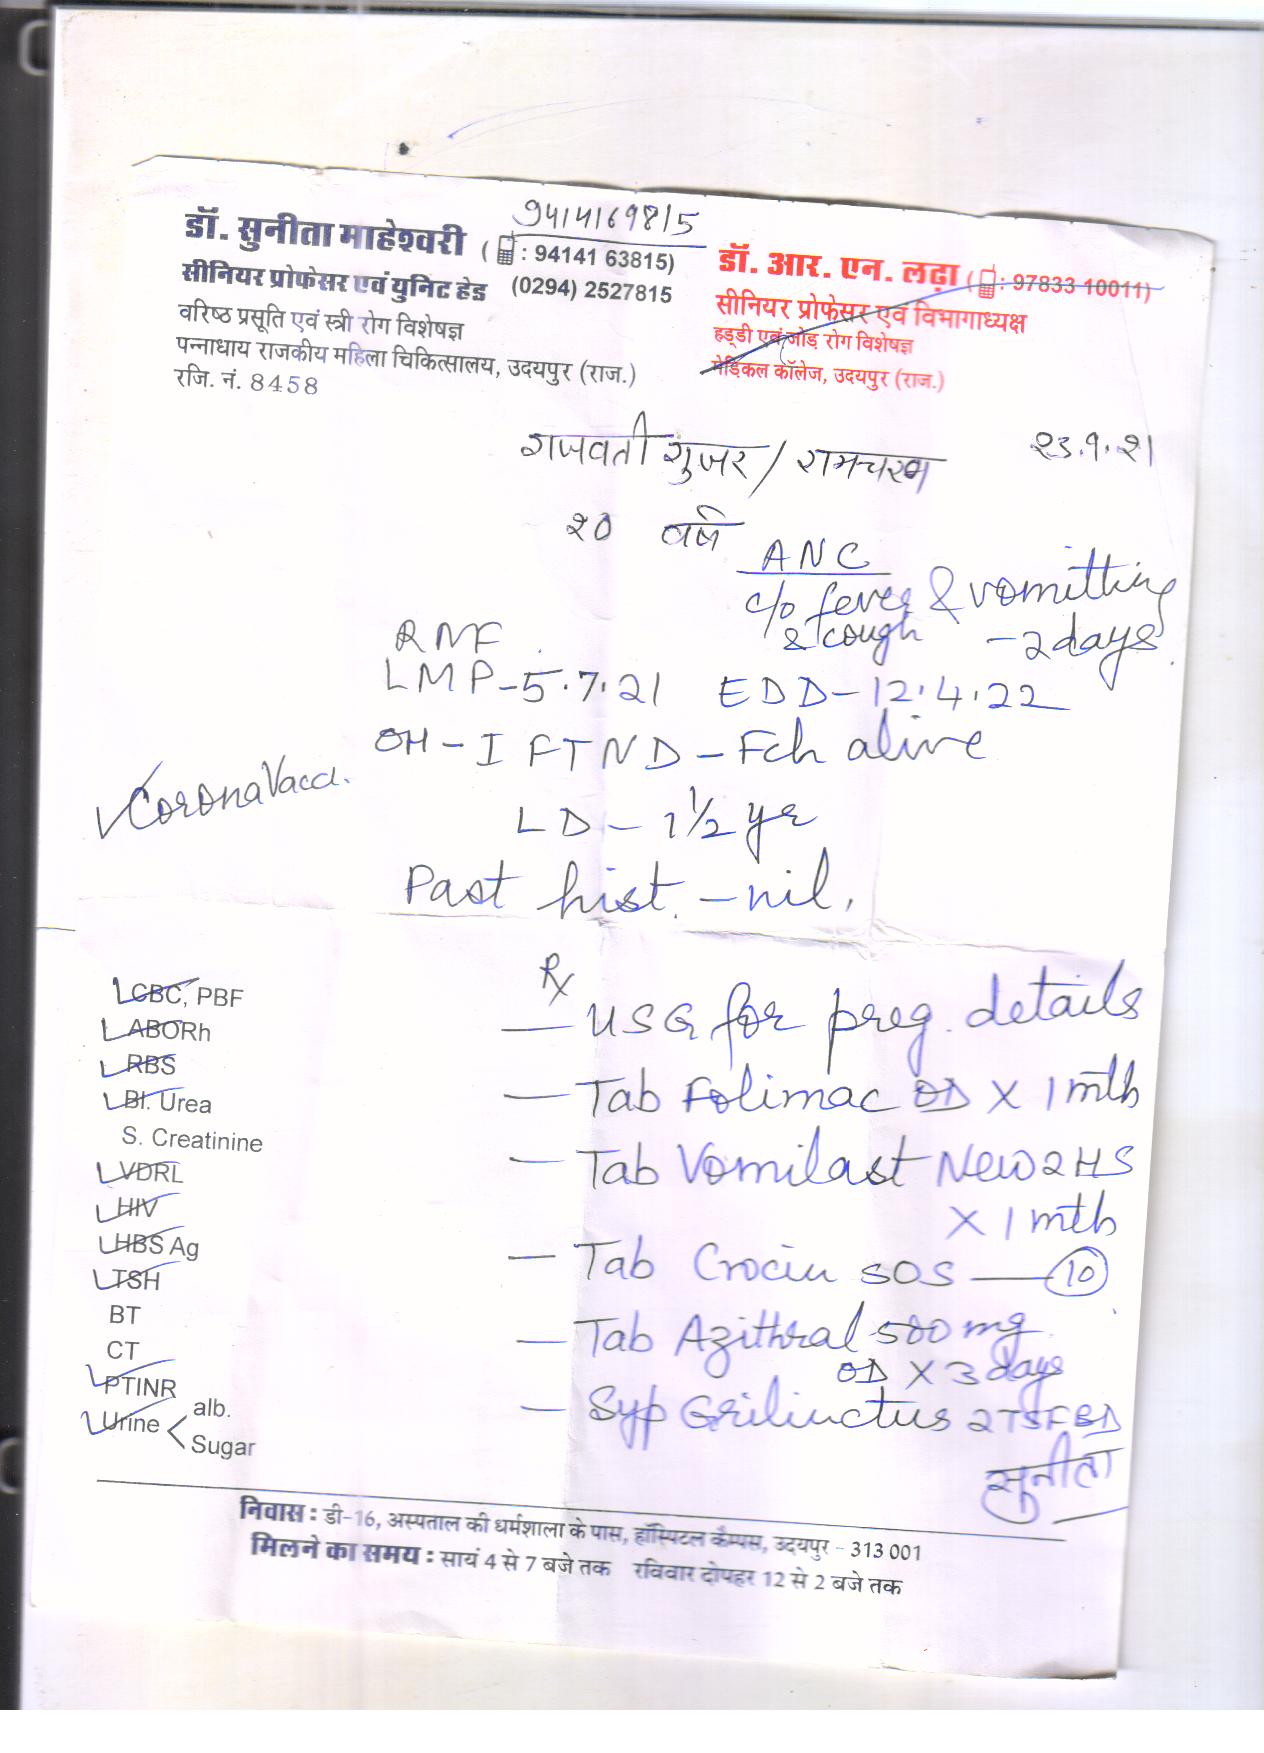 9414169815
डॉ. सुनीता माहेश्वरी ( : 94141 63815)
सीनियर प्रोफेसर एवं युनिट हेड (0294) 2527815
वरिष्ठ प्रसूति एवं स्त्री रोग विशेषज्ञ
पन्नाधाय राजकीय महिला चिकित्सालय, उदयपुर (राज.)
रजि. नं. 8458
डॉ. आर. एन. लढ़ा ( : 97833 10011)
सीनियर प्रोफेसर एवं विभागाध्यक्ष
हड्डी एवं जोड़ रोग विशेषज्ञ
मेडिकल कॉलेज, उदयपुर (राज.)
गुजर / रामचरण २३.९.२१
२० वर्ष
ANC
c/o fever & vomitting
& cough - 2 days
RMF
LMP - 5.7.21 EDD - 12.4.22
OH - I FTND - Fch alive
✓Corona Vacci.
LD - 1 1/2 yr
Past hist. - nil.
CBC, PBF
ABORh
RBS
Bl. Urea
S. Creatinine
VDRL
HIV
HBS Ag
TSH
BT
CT
PTINR
Urine < alb.
Sugar
Rx
— USG for preg. details
— Tab Folimac OD X 1 mth
— Tab Vomilast New 2 HS
X 1 mth
— Tab Crocin SOS — 10
— Tab Azithral 500 mg
OD X 3 days
— Syp Grilinctus 2 TSF BD
सुनीता
निवास : डी-16, अस्पताल की धर्मशाला के पास, हॉस्पिटल कैम्पस, उदयपुर - 313 001
मिलने का समय : सायं 4 से 7 बजे तक रविवार दोपहर 12 से 2 बजे तक